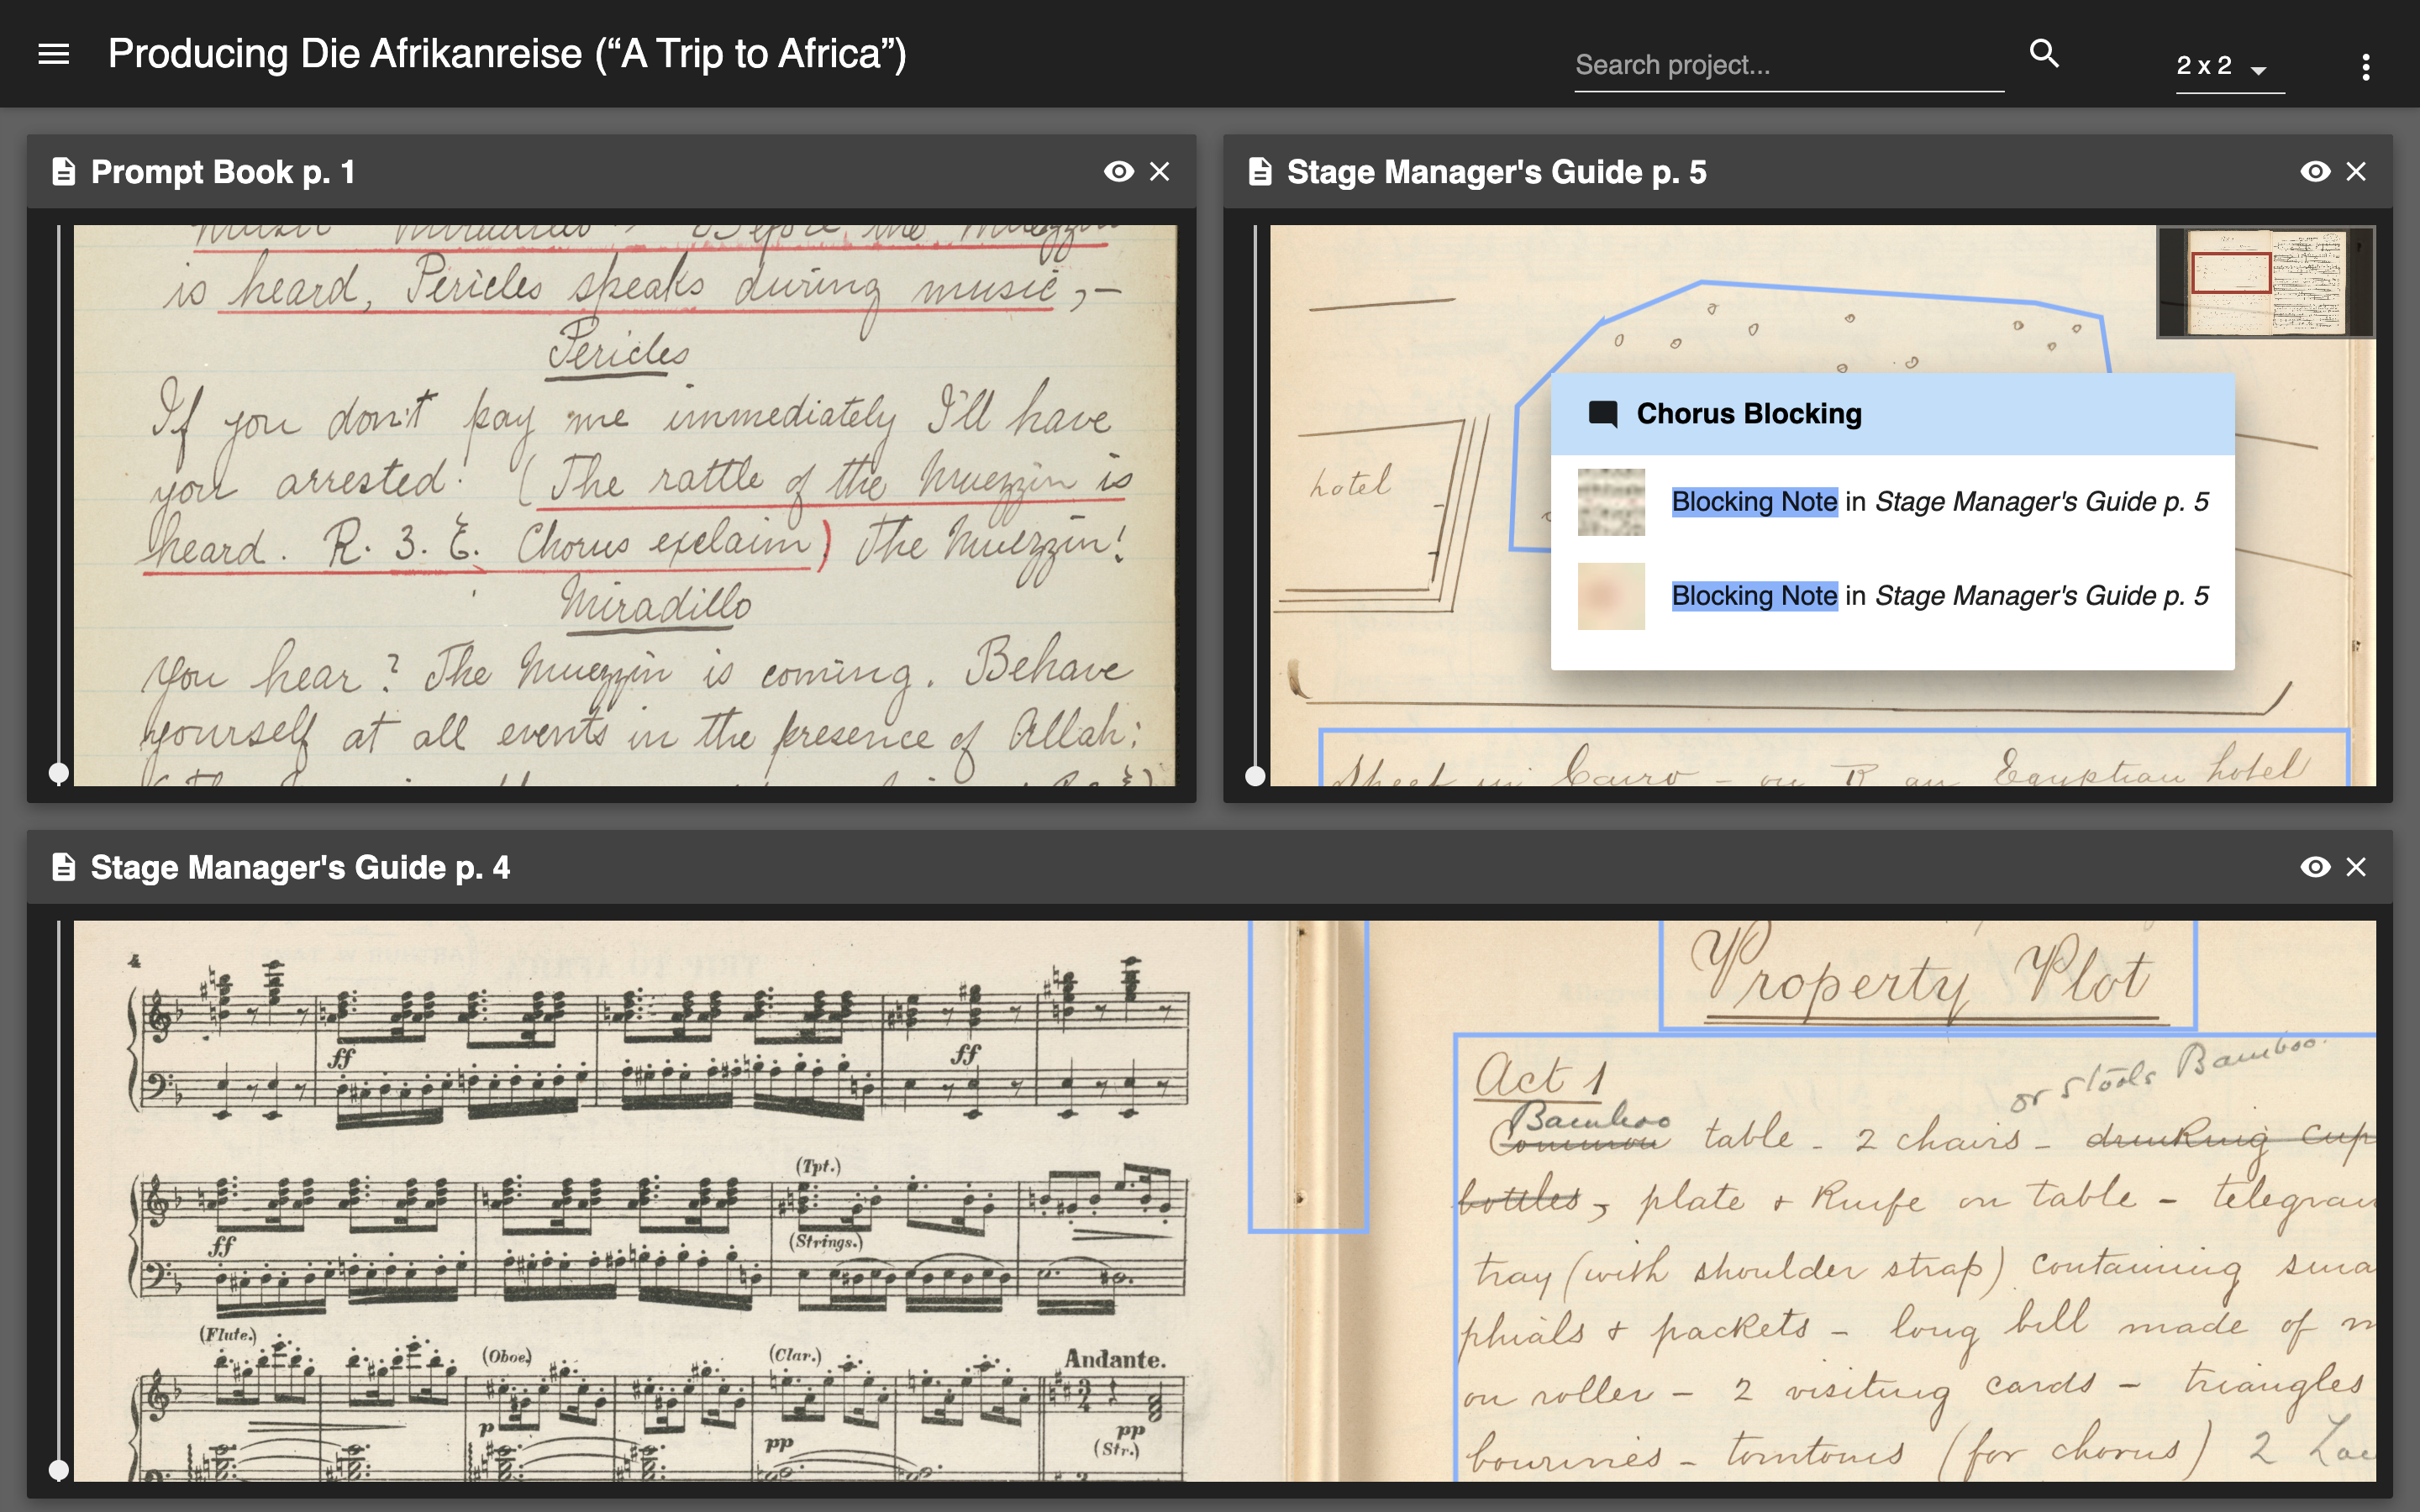 Producing Die Afrikanreise (“A Trip to Africa”)
Search project...
2 x 2
Prompt Book p. 1
music Miradillo Before the Muezzin
is heard, Pericles speaks during music,—
Pericles
If you don't pay me immediately I'll have
you arrested! (The rattle of the Muezzin is
heard. R. 3. E. Chorus exclaim) The Muezzin!
Miradillo
You hear? The Muezzin is coming. Behave
yourself at all events in the presence of Allah:
Stage Manager's Guide p. 5
hotel
Chorus Blocking
Blocking Note in Stage Manager's Guide p. 5
Blocking Note in Stage Manager's Guide p. 5
Street in Cairo - on R an Egyptian hotel
Stage Manager's Guide p. 4
4
ff
ff
(Tpt.)
ff
(Strings.)
(Flute.)
(Oboe)
(Clar.)
Andante.
p
pp
pp
(Str.)
Property Plot
Act 1
or stools Bamboo.
Bamboo
Common table - 2 chairs - drinking cup
bottles, plate + knife on table - telegram
tray (with shoulder strap) containing sma
phials + packets - long bill made of m
on roller - 2 visiting cards - triangles
bourines - tomtoms (for chorus) 2